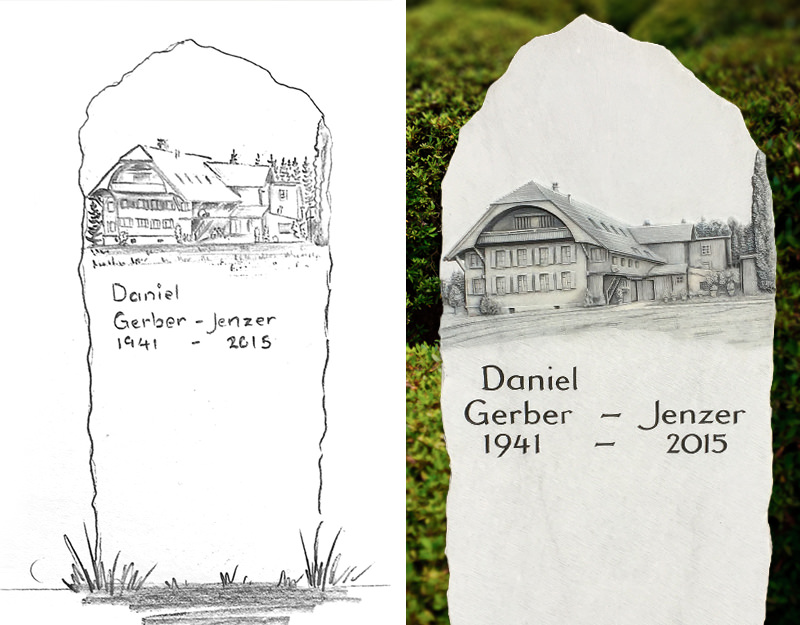 Daniel
Gerber - Jenzer
1941 - 2015
Daniel
Gerber – Jenzer
1941 – 2015